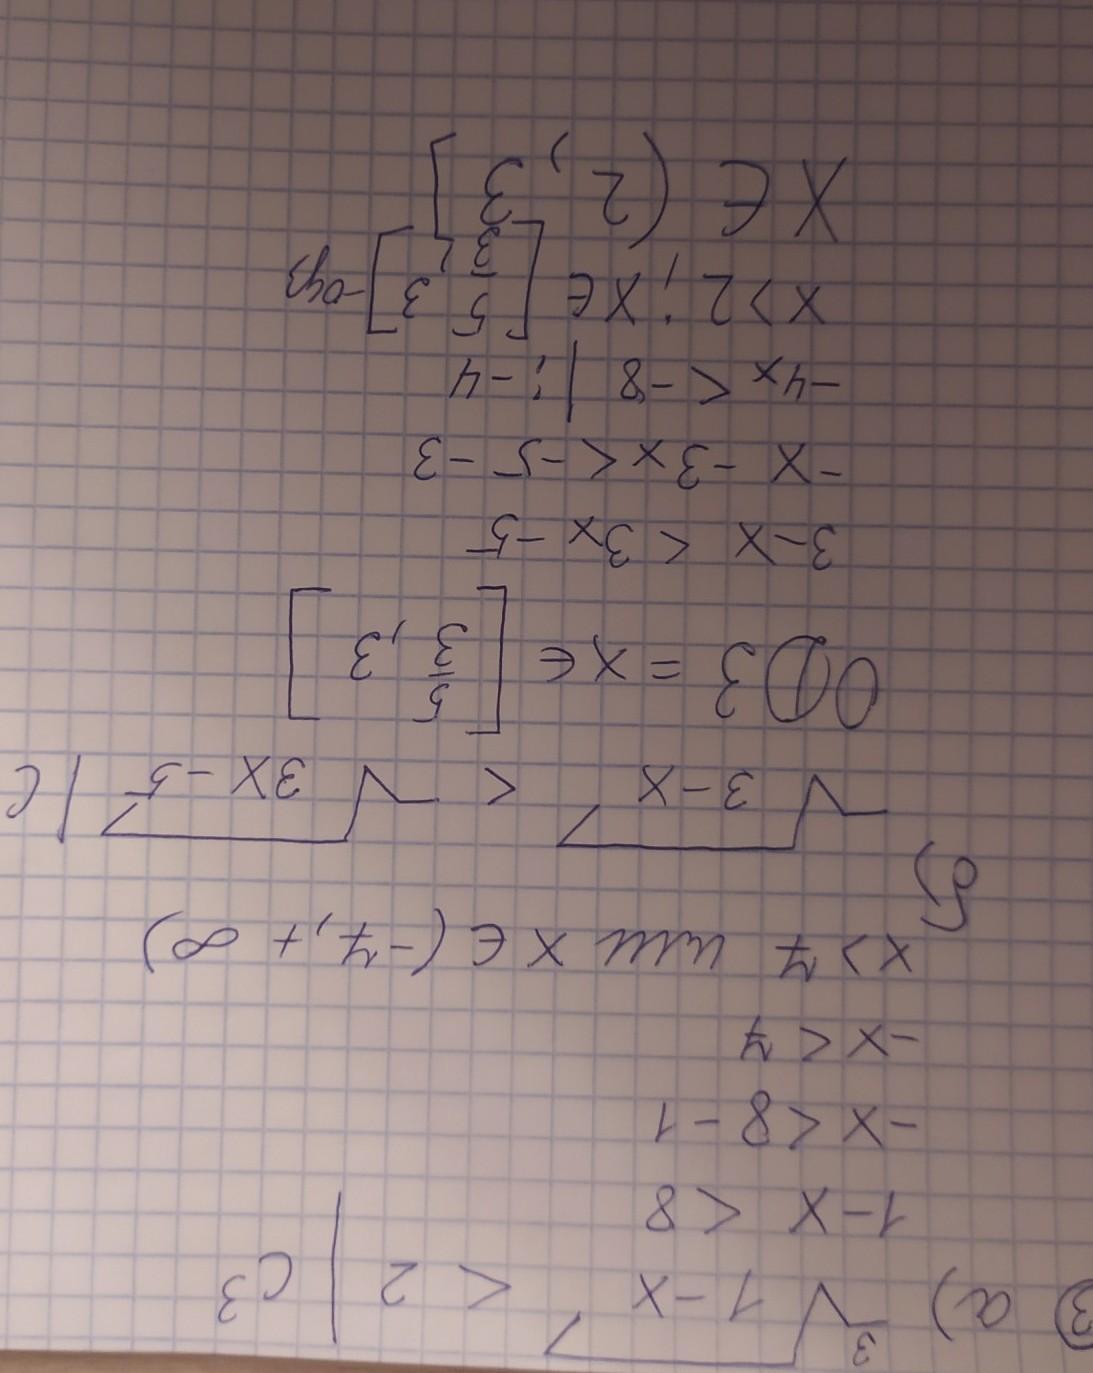 ③ а) ∛(1-x) < 2 | C3
1-x < 8
-x < 8-1
-x < 7
x>7 или x ∈ (-7, + ∞)
б) √(3-x) < √(3x-5) | C
ОДЗ = x ∈ [5/3, 3]
3-x < 3x-5
-x -3x < -5 -3
-4x < -8 | : -4
x>2 ; x ∈ [5/3, 3] -одз
x ∈ (2, 3]